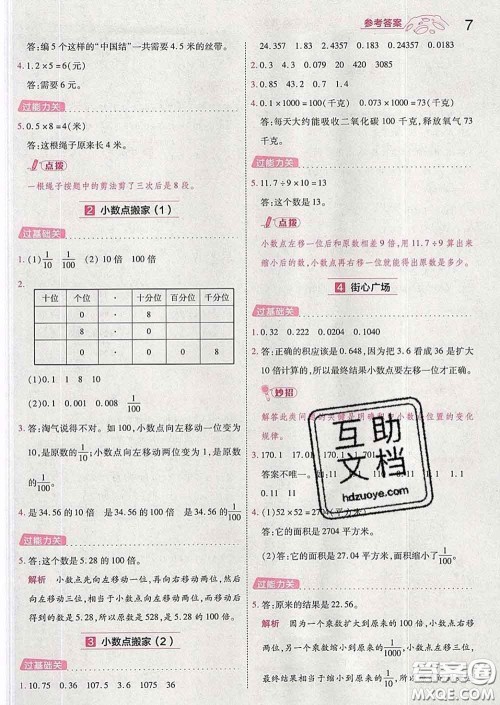 参考答案 7
答:编5个这样的“中国结”一共需要4.5米的丝带。
4. 1.2×5=6(元)
答:需要6元。
过能力关
5. 0.5×8=4(米)
答:这根绳子原来长4米。
点拨
一根绳子按题中的剪法剪了三次后是8段。
2 小数点搬家(1)
过基础关
1. (1) 1/10 1/100 (2)10倍 100倍
2.
十位 个位 · 十分位 百分位 千分位
0 · 8
0 · 0 8
8 ·
(1)0.1 18 80
(2)0.01 0.008 8
3. 答:淘气说得不对。如:小数点向左移动一位变为
10,是原数的1/10;小数点向左移动两位变为1,是原
数的1/100。
4. 是34.56的10倍 是34.56的1/10 是34.56的100倍
过能力关
5. 答:这个数是5.28的100倍。
解析 小数点先向左移动一位,再向右移动两位,然后
向左移动三位,相当于小数点向左移动了两位,移动
后的数是5.28,所以原数是528,是5.28的100倍。
3 小数点搬家(2)
过基础关
1. 10.75 0.36 107.5 3.6 1075 36
24.357 4.381 0.24357 0.0183
3.
4. 0.1×1000=100(千克) 0.073×1000=73(千克)
答:每天大约能吸收二氧化碳100千克,释放氧气73
千克。
过能力关
5. 11.7÷9×10=13
答:这个数是13。
点拨
小数点左移一位后和原数相差9倍,用11.7÷9算出来
缩小后的数,小数点再右移一位就能得出原数是多少。
4 街心广场
过基础关
1. 0.32 0.222
2. 答:正确的积应该是0.648,因为把3.6看成36是扩大
10倍计算的,所以最终结果小数点要左移一位才正确。
妙招
解答此类问题的关键是明确积的小数点位置的变化
规律。
3. 170.1 17.01
答案不唯一。如:
0.11
4. (1)52×52=2704(平方米)
答:它的面积是2704平方米。
(2)答:它的面积是27.04平方米。
过能力关
5. 答:原来的结果是22.56。
解析 因为一个乘数扩大到原来的100倍,另一个乘
数缩小到原来的
互助
文档
hdzuoye.com
答案圈
MXQE.COM